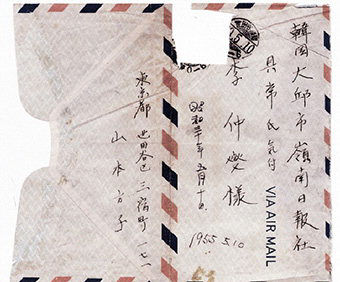 韓国大邱市嶺南日報社
具常氏気付
李仲燮様
昭和三十年五月十日
1955 5.10
VIA AIR MAIL
東京都世田谷区三宿町一七一
山本方子